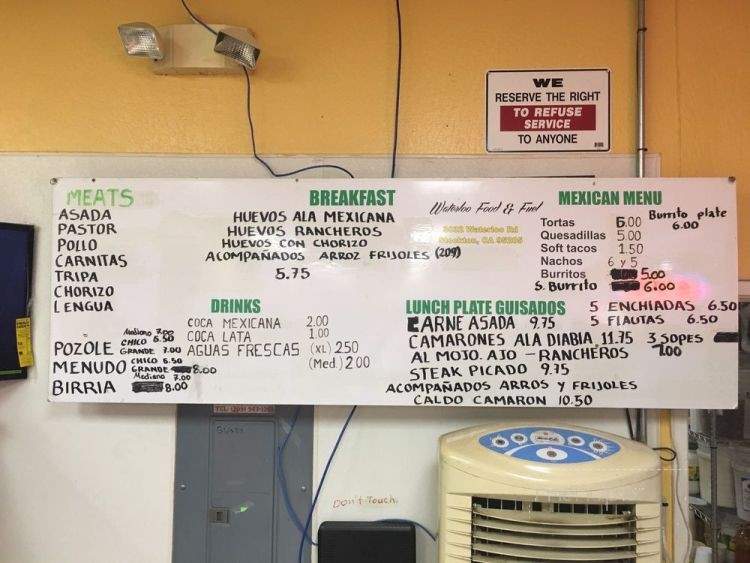 WE
RESERVE THE RIGHT
TO REFUSE
SERVICE
TO ANYONE
MEATS
ASADA
PASTOR
POLLO
CARNITAS
TRIPA
CHORIZO
LENGUA
POZOLE Mediano 7.00
CHICO 6.50
GRANDE 7.00
MENUDO CHICO 6.50
GRANDE 8.00
Mediano 7.00
BIRRIA 8.00
BREAKFAST
HUEVOS ALA MEXICANA
HUEVOS RANCHEROS
HUEVOS CON CHORIZO
ACOMPAÑADOS ARROZ FRIJOLES
5.75
DRINKS
COCA MEXICANA 2.00
COCA LATA 1.00
AGUAS FRESCAS (XL) 250
(Med.) 200
Waterloo Food & Fuel
3032 Waterloo Rd
Stockton, CA 95205
(209)
MEXICAN MENU
Tortas 6.00
Quesadillas 5.00
Soft tacos 1.50
Nachos 6 y 5
Burritos 5.00
S. Burrito 6.00
Burrito plate
6.00
LUNCH PLATE GUISADOS
CARNE ASADA 9.75
CAMARONES ALA DIABIA 11.75
AL MOJO. AJO - RANCHEROS
STEAK PICADO 9.75
ACOMPAÑADOS ARROS Y FRIJOLES
CALDO CAMARON 10.50
5 ENCHIADAS 6.50
5 FLAUTAS 6.50
3 SOPES
7.00
Don't Touch.